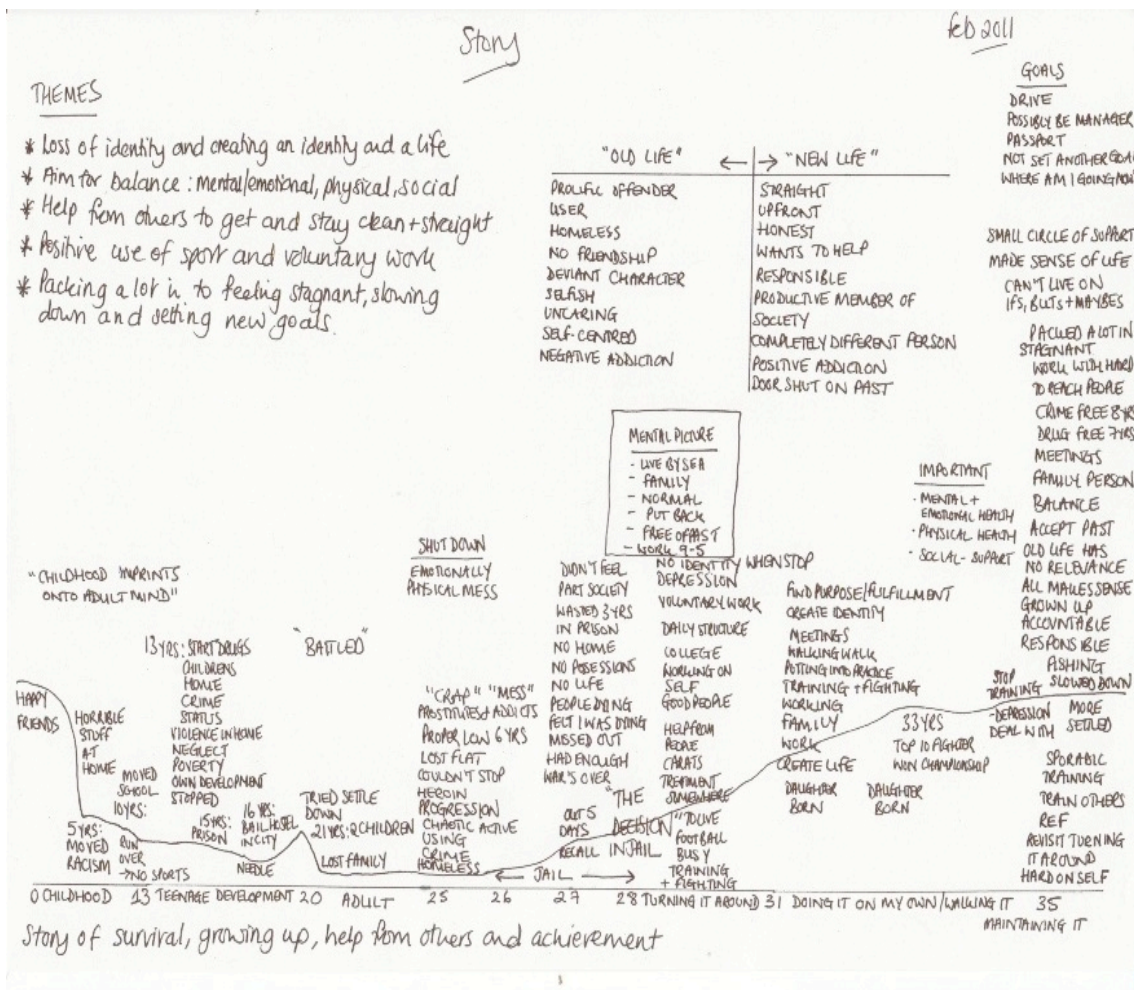 Story
feb 2011
THEMES
* Loss of identity and creating an identity and a life
* Aim for balance : mental/emotional, physical, social
* Help from others to get and stay clean + straight
* Positive use of sport and voluntary work
* Packing a lot in to feeling stagnant, slowing
down and setting new goals.
"OLD LIFE" ← → "NEW LIFE"
PROLIFIC OFFENDER
USER
HOMELESS
NO FRIENDSHIP
DEVIANT CHARACTER
SELFISH
UNCARING
SELF-CENTRED
NEGATIVE ADDICTION
STRAIGHT
UPFRONT
HONEST
WANTS TO HELP
RESPONSIBLE
PRODUCTIVE MEMBER OF
SOCIETY
COMPLETELY DIFFERENT PERSON
POSITIVE ADDICTION
DOOR SHUT ON PAST
GOALS
DRIVE
POSSIBLY BE MANAGER
PASSPORT
NOT SET ANOTHER GOAL
WHERE AM I GOING NOW
SMALL CIRCLE OF SUPPORT
MADE SENSE OF LIFE
CAN'T LIVE ON
IFS, BUTS + MAYBES
PACKED A LOT IN
STAGNANT
WORK WITH HARD
TO REACH PEOPLE
CRIME FREE 8YRS
DRUG FREE 7YRS
MEETINGS
FAMILY PERSON
BALANCE
ACCEPT PAST
OLD LIFE HAS
NO RELEVANCE
ALL MAKES SENSE
GROWN UP
ACCOUNTABLE
RESPONSIBLE
FISHING
SLOWED DOWN
MORE
SETTLED
SPORADIC
TRAINING
TRAIN OTHERS
REF
REVISIT TURNING
IT AROUND
HARD ON SELF
MENTAL PICTURE
- LIVE BY SEA
- FAMILY
- NORMAL
- PUT BACK
- FREE OF PAST
- WORK 9-5
IMPORTANT
· MENTAL +
EMOTIONAL HEALTH
· PHYSICAL HEALTH
· SOCIAL - SUPPORT
"CHILDHOOD IMPRINTS
ONTO ADULT MIND"
HAPPY
FRIENDS
HORRIBLE
STUFF
AT
HOME
5YRS:
MOVED
RACISM
MOVED
SCHOOL
10YRS:
RUN
OVER
→ NO SPORTS
13YRS: START DRUGS
CHILDRENS
HOME
CRIME
STATUS
VIOLENCE IN HOME
NEGLECT
POVERTY
OWN DEVELOPMENT
STOPPED
15YRS:
PRISON
16 YRS:
BAIL HOSTEL
IN CITY
NEEDLE
"BATTLED"
TRIED SETTLE
DOWN
21YRS: 2 CHILDREN
LOST FAMILY
SHUT DOWN
EMOTIONALLY
PHYSICAL MESS
"CRAP" "MESS"
PROSTITUTES + ADDICTS
PROPER LOW 6 YRS
LOST FLAT
COULDN'T STOP
HEROIN
PROGRESSION
CHAOTIC ACTIVE
USING
CRIME
HOMELESS
← JAIL →
DIDN'T FEEL
PART SOCIETY
WASTED 3 YRS
IN PRISON
NO HOME
NO POSESSIONS
NO LIFE
PEOPLE DYING
FELT I WAS DYING
MISSED OUT
HAD ENOUGH
WAR'S OVER
OUT 5
DAYS
RECALL
"THE
DECISION"
IN JAIL
NO IDENTITY WHEN STOP
DEPRESSION
VOLUNTARY WORK
DAILY STRUCTURE
COLLEGE
WORKING ON
SELF
GOOD PEOPLE
HELP FROM
PEOPLE
CARATS
TREATMENT
SOMEWHERE
TO LIVE
FOOTBALL
BUSY
TRAINING
+ FIGHTING
FIND PURPOSE/FULFILLMENT
CREATE IDENTITY
MEETINGS
WALKING WALK
PUTTING INTO PRACTICE
TRAINING + FIGHTING
WORKING
FAMILY
WORK
CREATE LIFE
DAUGHTER
BORN
DAUGHTER
BORN
33YRS
TOP 10 FIGHTER
WON CHAMPIONSHIP
STOP
TRAINING
-DEPRESSION
DEAL WITH
0 CHILDHOOD 13 TEENAGE DEVELOPMENT 20 ADULT 25 26 27 28 TURNING IT AROUND 31 DOING IT ON MY OWN/WALKING IT 35
MAINTAINING IT
Story of survival, growing up, help from others and achievement